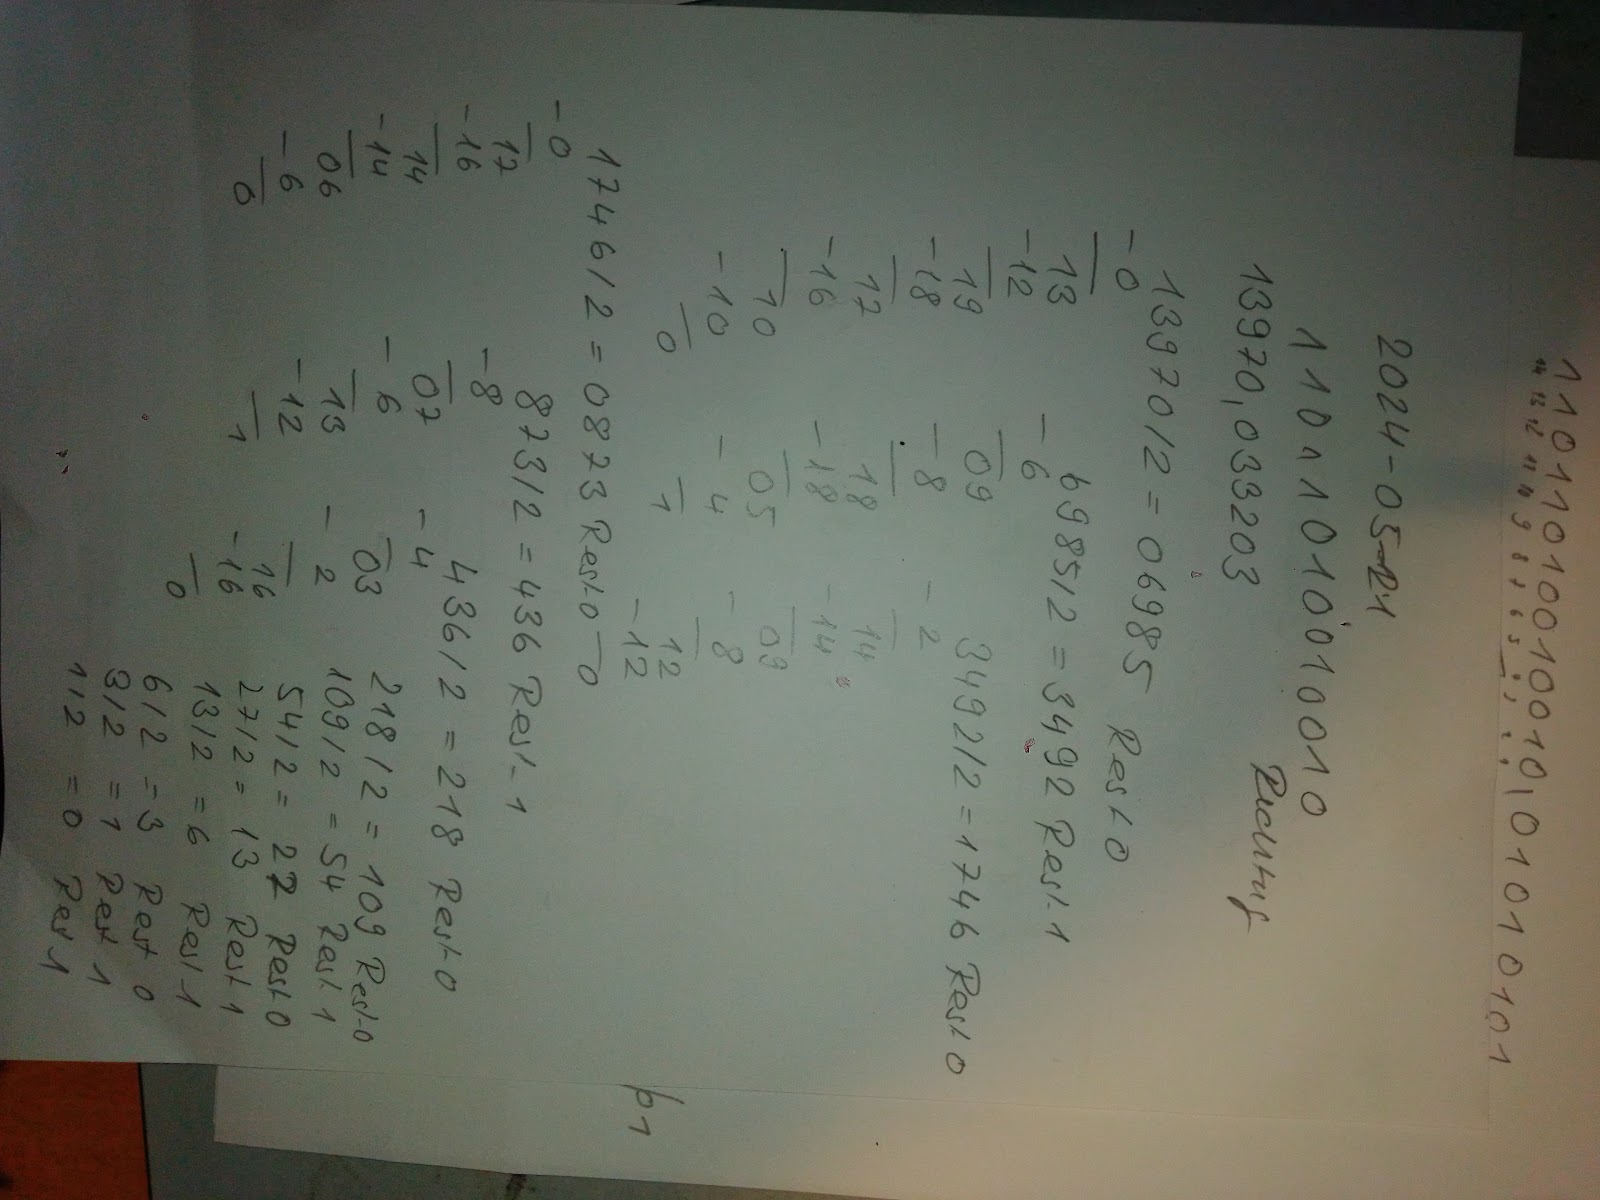 11011010010010,01011010101
2024-05-21
11011010010010
13970,033203
13970/2 = 06985 Rest 0
-0
13
-12
19
-18
17
-16
10
-10
0
6985/2 = 3492 Rest 1
-6
09
-8
18
-18
05
-4
1
3492/2 = 1746 Rest 0
-2
14
-14
09
-8
12
-12
0
1746/2 = 0873 Rest 0
-0
17
-16
14
-14
06
-6
0
873/2 = 436 Rest 1
-8
07
-6
13
-12
1
436/2 = 218 Rest 0
-4
03
-2
16
-16
0
218/2 = 109 Rest 0
109/2 = 54 Rest 1
54/2 = 27 Rest 0
27/2 = 13 Rest 1
13/2 = 6 Rest 1
6/2 = 3 Rest 0
3/2 = 1 Rest 1
1/2 = 0 Rest 1